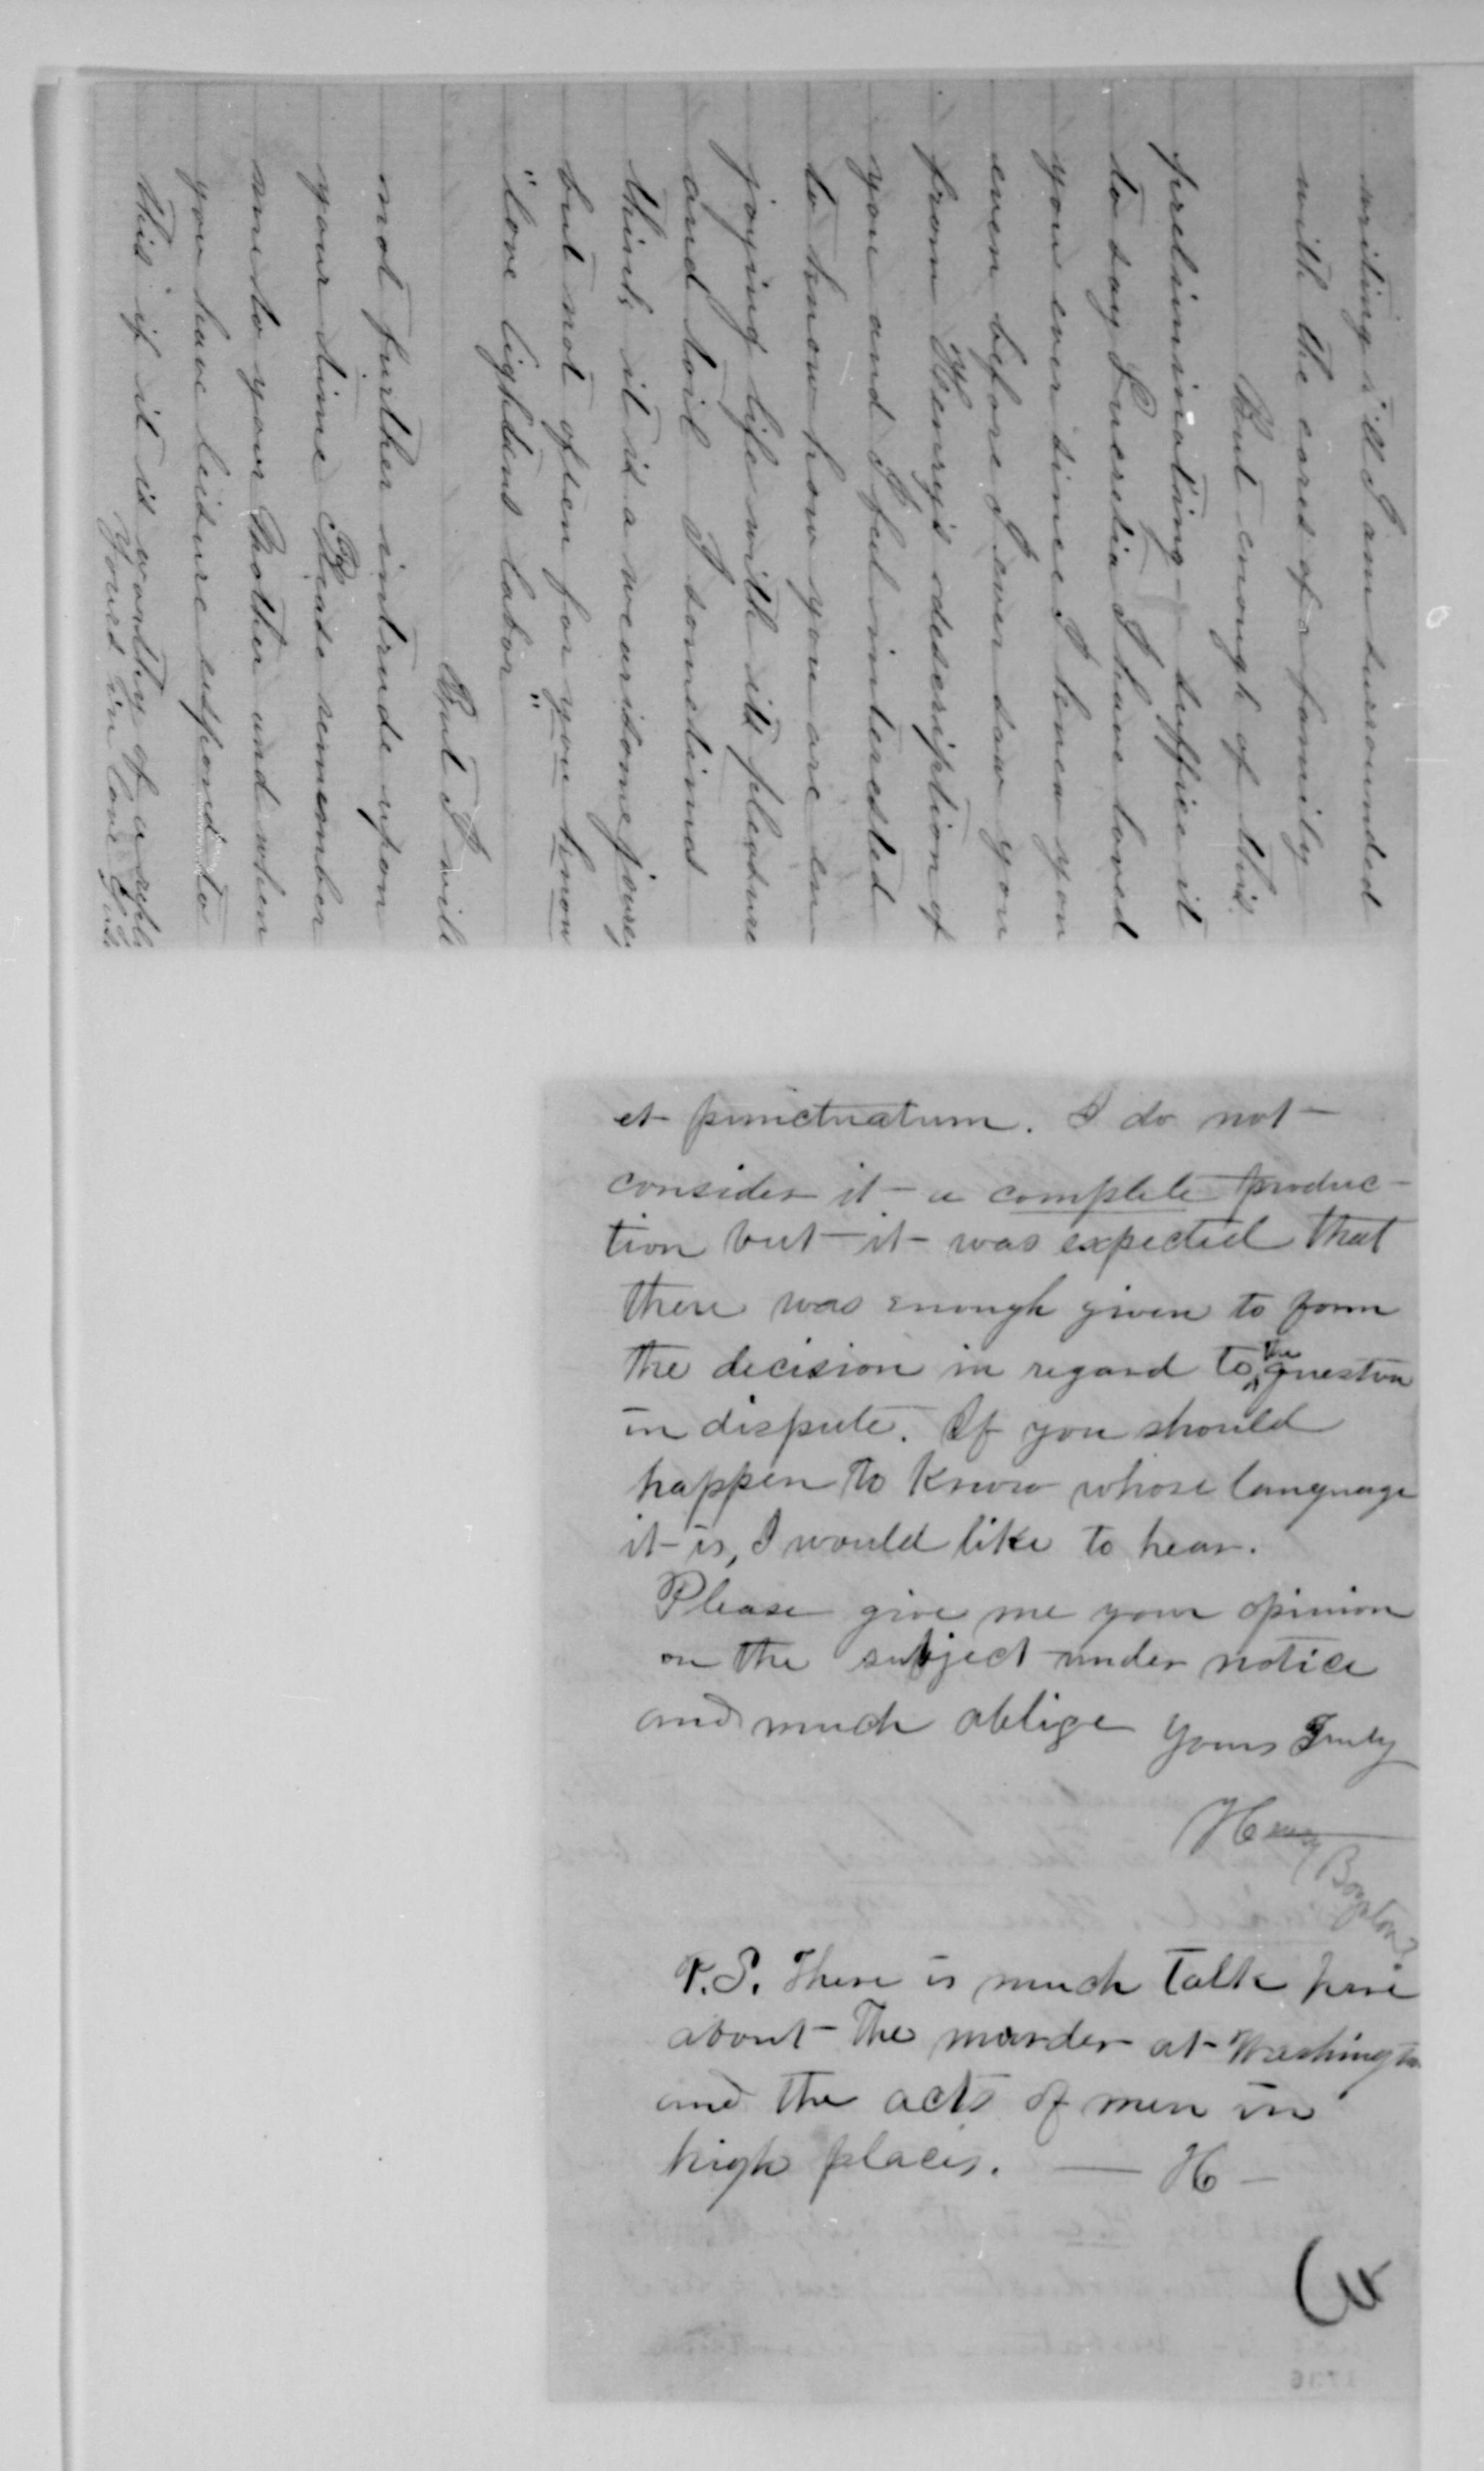 writing till I am surrounded
with the cares of a family
But enough of this
prelsiminating - suffice it
to say Lucretia I have loved
you ever since I knew you
even before I ever saw you
from Henry's description of
you and I feel interested
to know how you are en-
joying life with its pleasure
and toil I sometimes
think it is a wearisome journey
but not often for you know
"love lightens labor"
But I will
not further intrude upon
your time Please remember
me to your Mother and when
you have leisure respond to
this if it is worthy of a reply
Yours in love
et punctuatum. I do not
consider it a complete produc-
tion but it was expected that
there was enough given to form
the decision in regard to the question
in dispute. If you should
happen to know whose language
it is, I would like to hear.
Please give me your opinion
on the subject under notice
and much oblige Yours Truly
Henry Boynton
P.S. There is much talk here
about the murder at Washington
and the acts of men in
high places. — H —